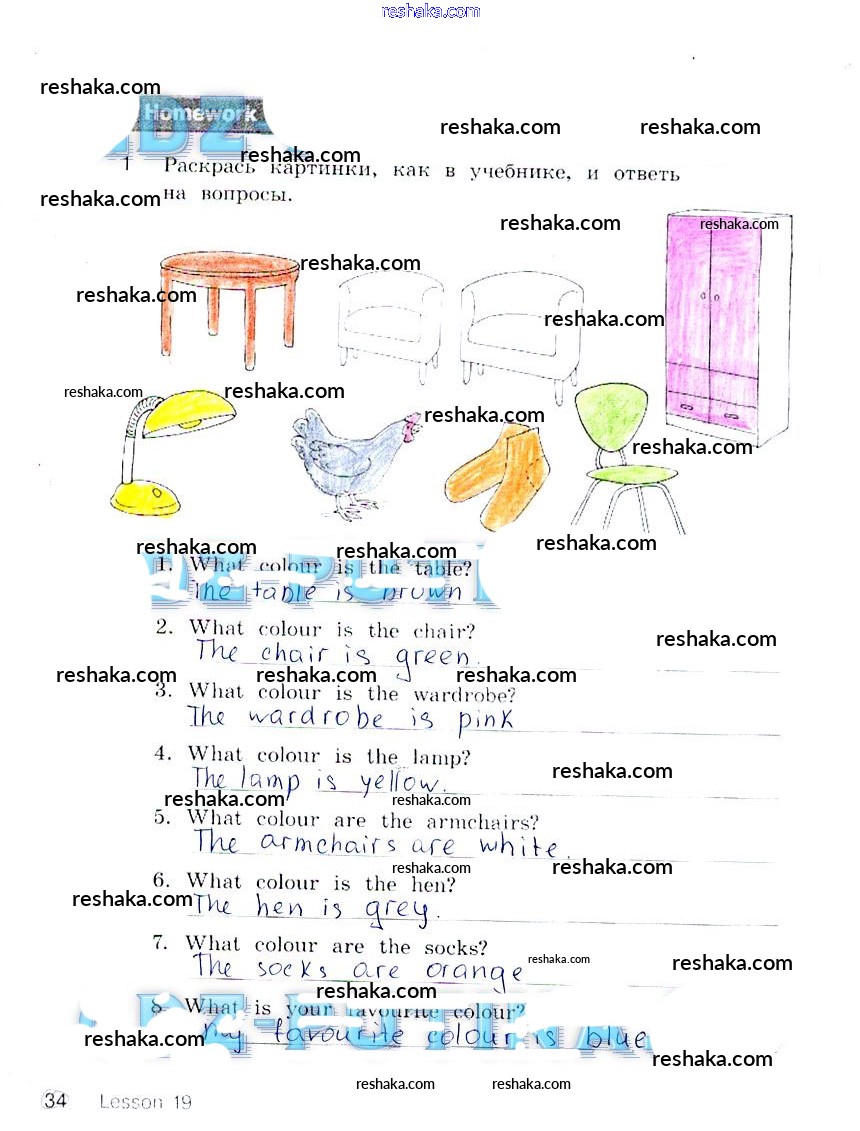 reshaka.com
reshaka.com
Homework
reshaka.com reshaka.com
reshaka.com
1 Раскрась картинки, как в учебнике, и ответь
на вопросы.
reshaka.com
reshaka.com reshaka.com
reshaka.com
reshaka.com
reshaka.com
reshaka.com reshaka.com
reshaka.com
reshaka.com
reshaka.com reshaka.com reshaka.com
1. What colour is the table?
The table is brown
2. What colour is the chair?
reshaka.com
The chair is green.
reshaka.com reshaka.com reshaka.com
3. What colour is the wardrobe?
The wardrobe is pink
4. What colour is the lamp?
reshaka.com
The lamp is yellow.
reshaka.com reshaka.com
5. What colour are the armchairs?
The armchairs are white.
reshaka.com reshaka.com
6. What colour is the hen?
reshaka.com
The hen is grey.
7. What colour are the socks?
reshaka.com reshaka.com
The socks are orange
reshaka.com
8. What is your favourite colour?
reshaka.com
My favourite colour is blue
reshaka.com
reshaka.com reshaka.com
34 Lesson 19